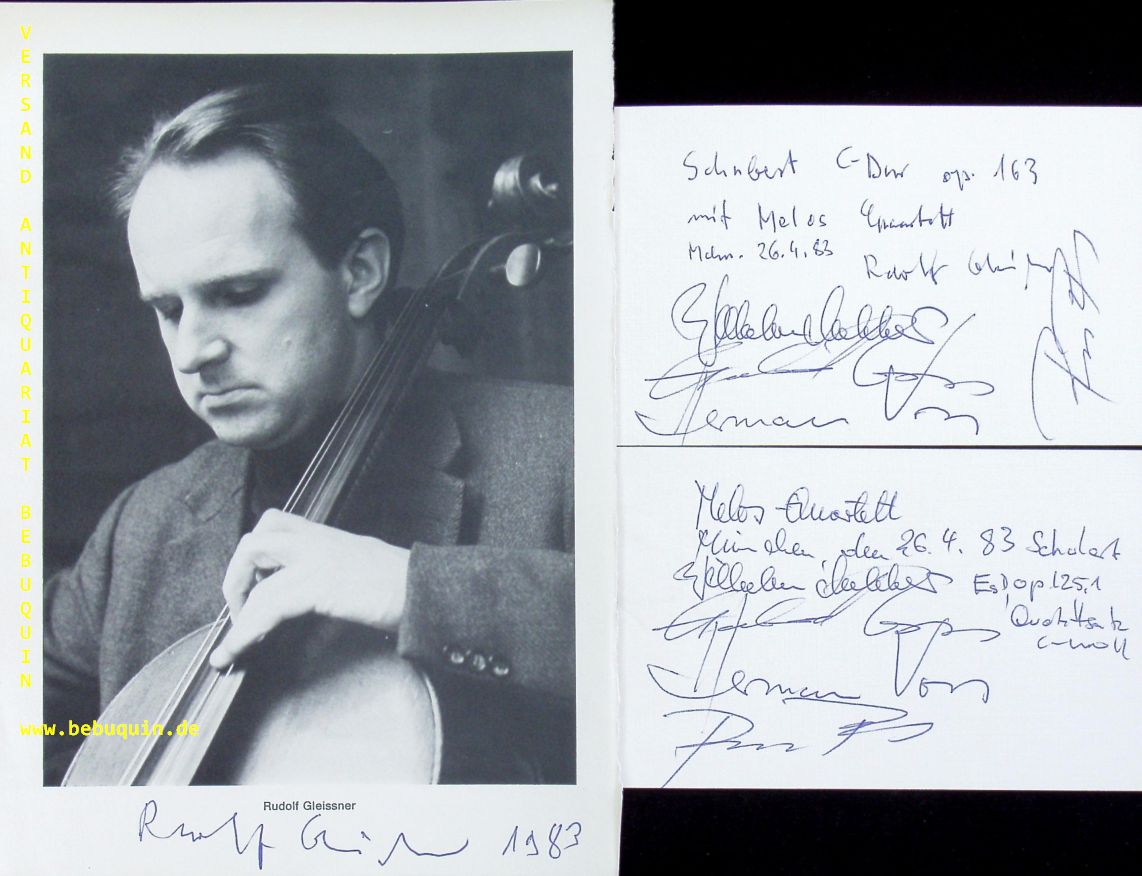 VERSAND ANTIQUARIAT BEBUQUIN
www.bebuquin.de
Rudolf Gleissner
Rudolf Gleißner 1983
Schubert C-Dur op. 163
mit Melos Quartett
Mchn. 26.4.83
Rudolf Gleißner
Wilhelm Melcher
Gerhard Voss
Hermann Voss
Peter Buck
Melos-Quartett
München, den 26.4.83 Schubert
Wilhelm Melcher Es D op. 125,1
Gerhard Voss Quartettsatz
c-moll
Hermann Voss
Peter Buck